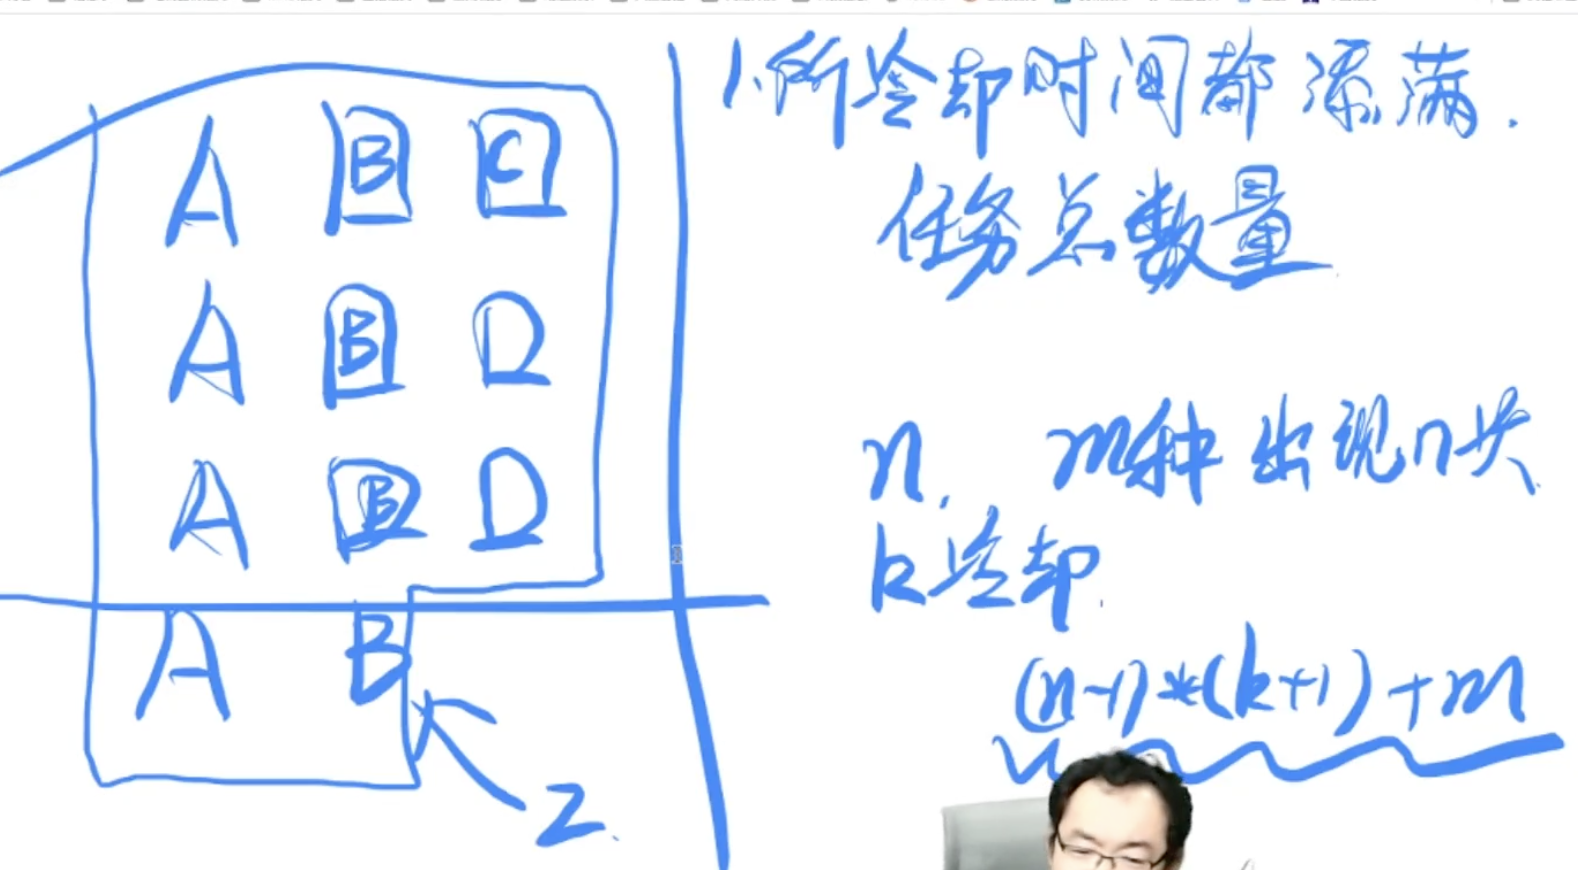 A B C
A B D
A B D
A B
2.
1.所冷却时间都添满.
任务总数量
n, m种出现n次
k冷却.
(n-1)*(k+1)+m